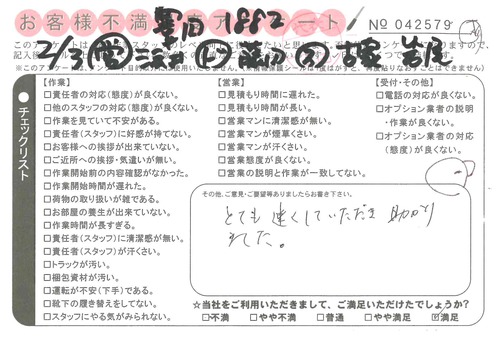 お客様不満 アンケート
1882
№ 042579
2/3
チェックリスト
【作業】
□責任者の対応(態度)が良くない。
□他のスタッフの対応(態度)が良くない。
□作業を見ていて不安がある。
□責任者(スタッフ)に好感が持てない。
□お客様への挨拶が出来ていない。
□ご近所への挨拶・気遣いが無い。
□作業開始前の内容確認がなかった。
□作業開始時間が遅れた。
□荷物の取り扱いが雑である。
□お部屋の養生が出来ていない。
□作業時間が長すぎる。
□責任者(スタッフ)に清潔感が無い。
□責任者(スタッフ)が汗くさい。
□トラックが汚い。
□梱包資材が汚い。
□運転が不安(下手)である。
□靴下の履き替えをしてない。
□スタッフにやる気がみられない。
【営業】
□見積もり時間に遅れた。
□見積もり時間が長い。
□営業マンに清潔感が無い。
□営業マンが煙草くさい。
□営業マンが汗くさい。
□営業態度が良くない。
□営業の説明と作業が一致してない。
【受付・その他】
□電話の対応が良くない。
□オプション業者の説明
・作業が良くない。
□オプション業者の対応
(態度)が良くない。
その他、ご意見・ご要望等ありましたらお書き下さい。
とても速くしていただき 助かり
ました。
☆当社をご利用いただきまして、ご満足いただけたでしょうか?
□不満 □やや不満 □普通 □やや満足 ☑満足